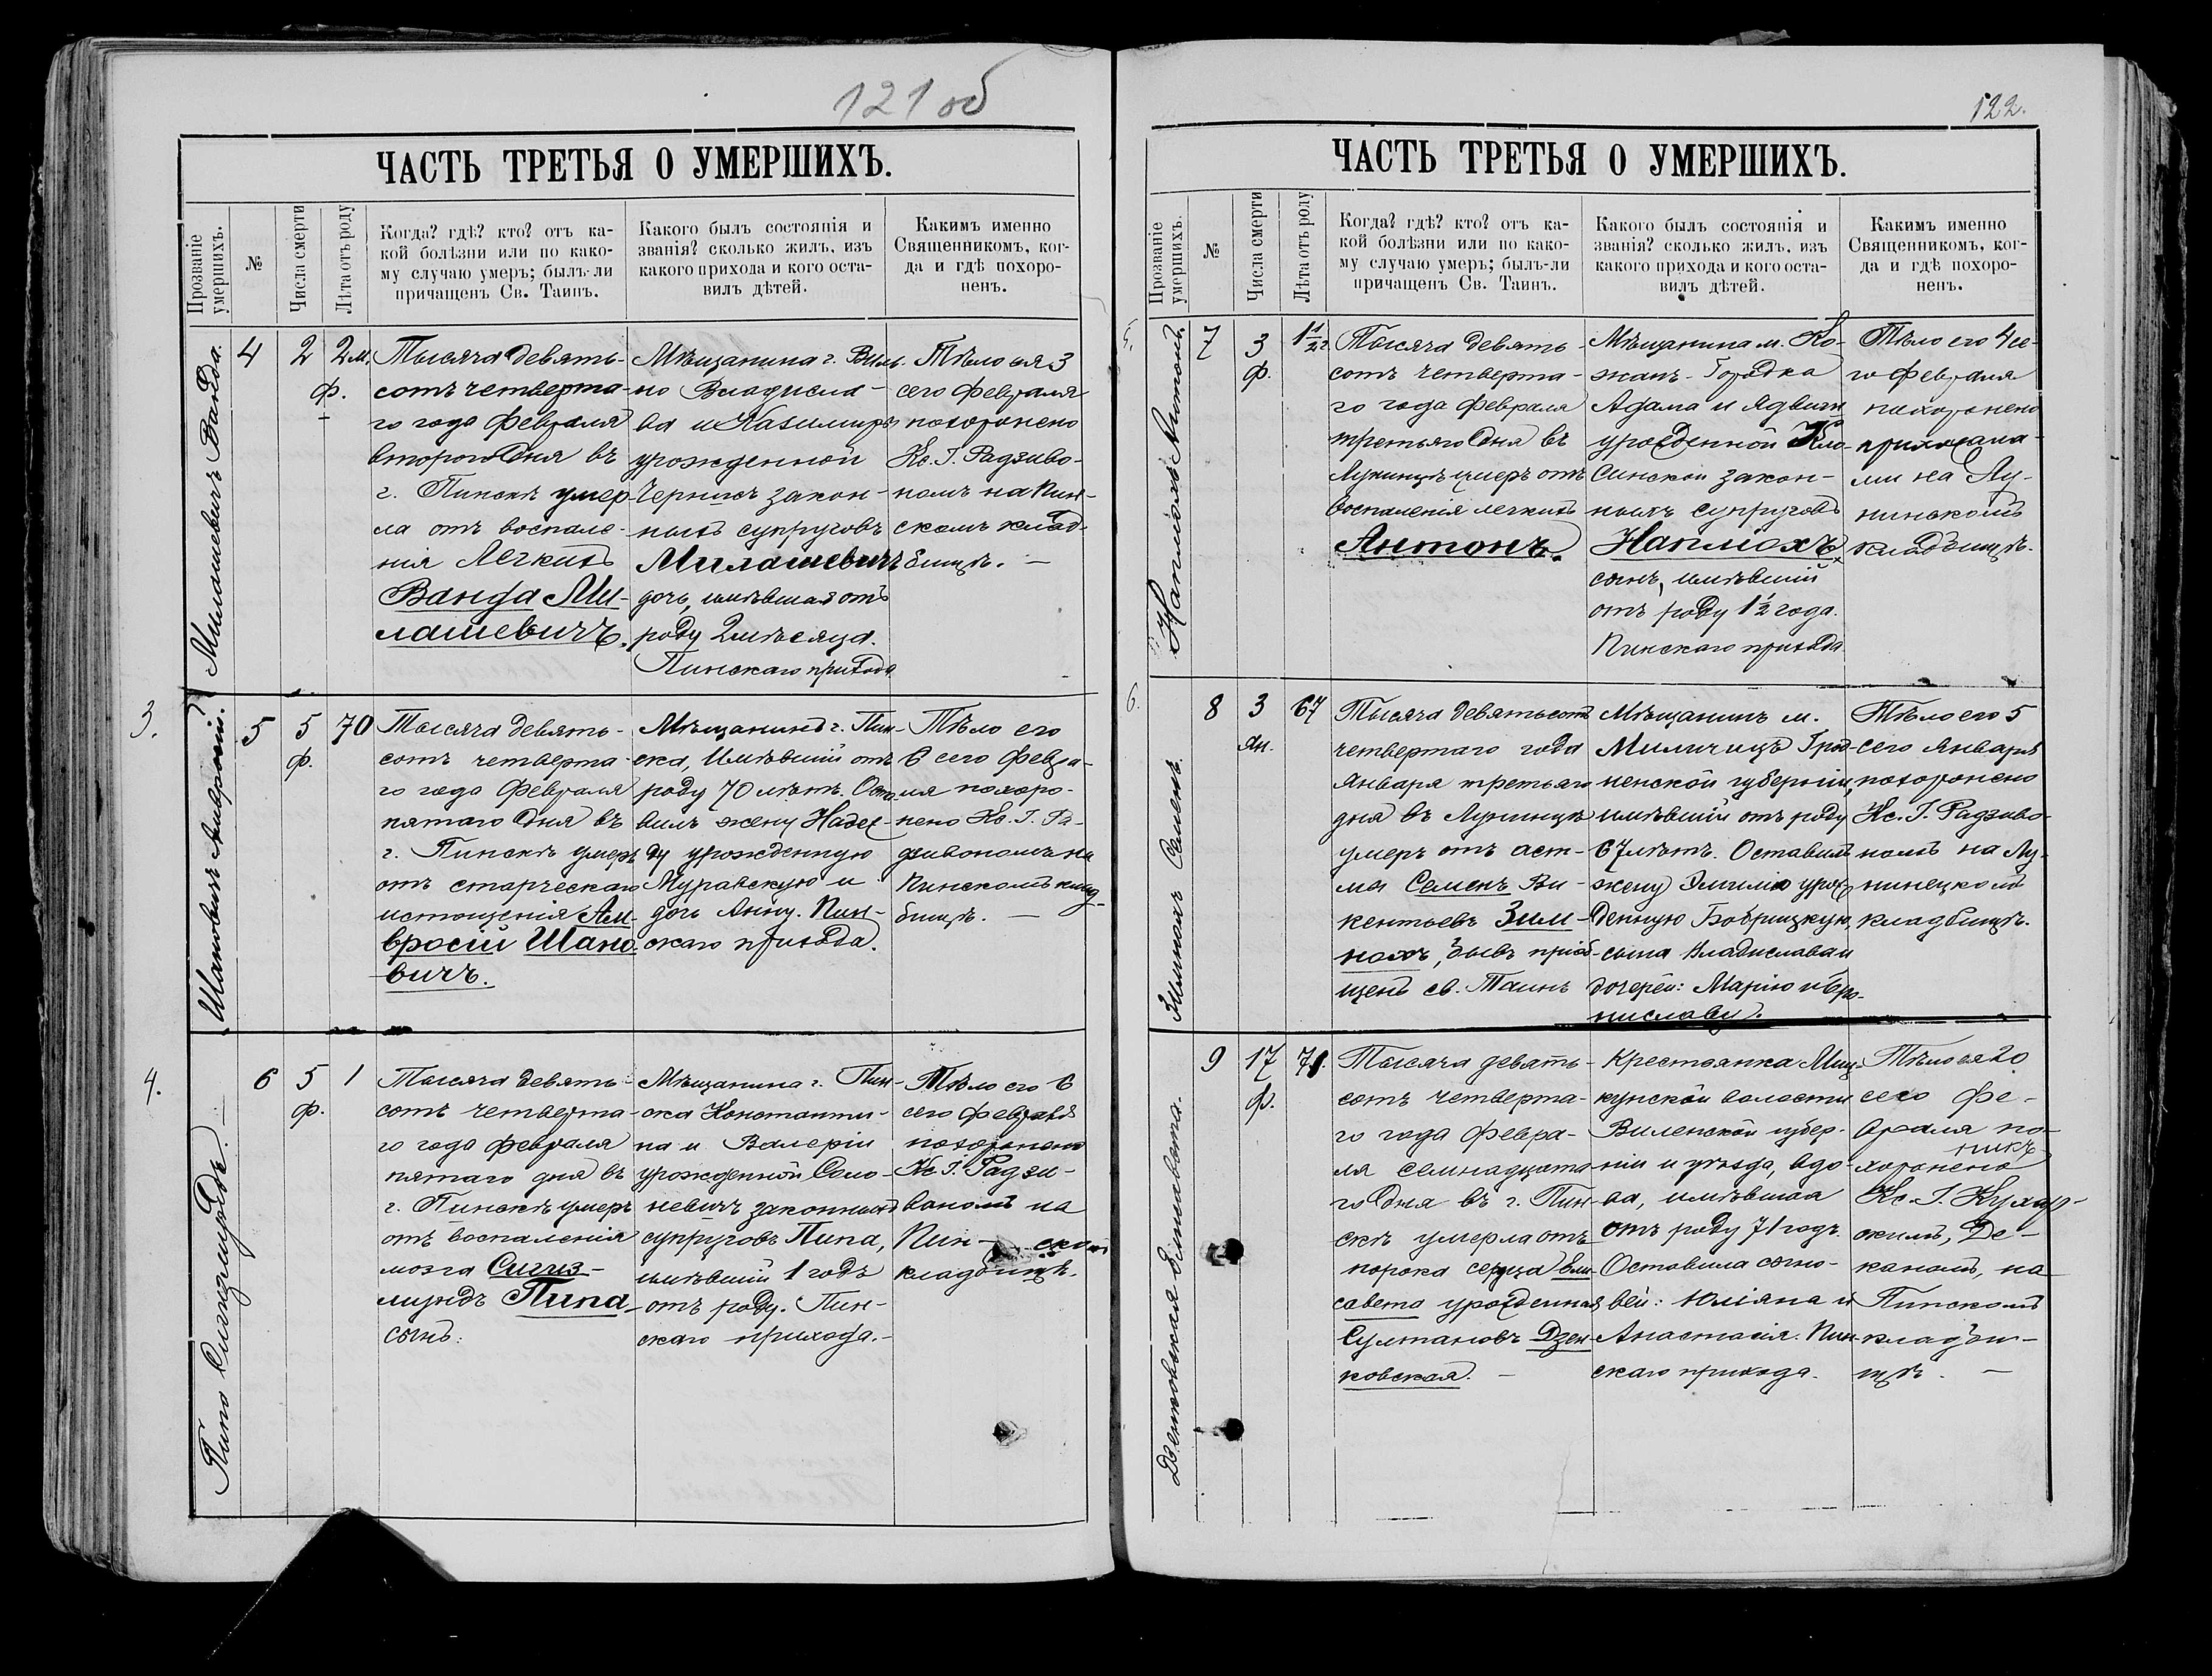 121 об
ЧАСТЬ ТРЕТЬЯ О УМЕРШИХЪ.
Прозваніе умершихъ.
№
Числа смерти
Лѣта отъ роду
Когда? гдѣ? кто? отъ ка-
кой болѣзни или по како-
му случаю умеръ; былъ-ли
причащенъ Св. Таинъ.
Какого былъ состоянія и
званія? сколько жилъ, изъ
какого прихода и кого оста-
вилъ дѣтей.
Какимъ именно
Священникомъ, ког-
да и гдѣ похоро-
ненъ.
Милашевичъ Ванда.
4
2
ф.
2 м.
Тысяча девять-
сотъ четверта-
го года февраля
второго дня въ
г. Пинскѣ умер-
ла отъ воспале-
нія легкихъ
Ванда Ми-
лашевичъ.
Мѣщанина г. Виль-
но Владисла-
ва и Казимиры
урожденной
Чернисъ закон-
ныхъ супруговъ
Милашевичъ
дочь, имѣвшая отъ
роду 2 мѣсяца.
Пинскаго прихода
Тѣло ея 3
сего февраля
похоронено
Кс. І. Радзиво-
номъ на Пин-
скомъ клад-
бищѣ. —
3.
Шановичъ Амвросій.
5
5
ф.
70
Тысяча девять-
сотъ четверта-
го года февраля
пятаго дня въ
г. Пинскѣ умеръ
отъ старческаго
истощенія Ам-
вросій Шано-
вичъ.
Мѣщанинъ г. Пин-
ска, имѣвшій отъ
роду 70 лѣтъ. Оста-
вилъ жену Надеж-
ду урожденную
Муравскую и
дочь Анну. Пин-
скаго прихода.
Тѣло его
6 сего февра-
ля похоро-
нено Кс. І. Ра-
дзивономъ на
Пинскомъ клад-
бищѣ. —
4.
Пипа Сигизмундъ. —
6
5
ф.
1
Тысяча девять-
сотъ четверта-
го года февраля
пятаго дня въ
г. Пинскѣ умеръ
отъ воспаленія
мозга Сигиз-
мундъ Пипа
сынъ.
Мѣщанина г. Пин-
ска Константи-
на и Валеріи
урожденной Семо-
невичъ законныхъ
супруговъ Пипа,
имѣвшій 1 годъ
отъ роду. Пин-
скаго прихода.-
Тѣло его 6
сего февраля
похоронено
Кс. І. Радзи-
вономъ на
Пин- скомъ
кладбищѣ.
122.
ЧАСТЬ ТРЕТЬЯ О УМЕРШИХЪ.
Прозваніе умершихъ.
№
Числа смерти
Лѣта отъ роду
Когда? гдѣ? кто? отъ ка-
кой болѣзни или по како-
му случаю умеръ; былъ-ли
причащенъ Св. Таинъ.
Какого былъ состоянія и
званія? сколько жилъ, изъ
какого прихода и кого оста-
вилъ дѣтей.
Какимъ именно
Священникомъ, ког-
да и гдѣ похоро-
ненъ.
5.
Наплюхъ Антонъ.
7
3
ф.
1 1/2 г
Тысяча девять-
сотъ четверта-
го года февраля
третьяго дня въ
Лунинцѣ умеръ отъ
воспаленія легкихъ
Антонъ.
Мѣщанина м. Ко-
жанъ-Городка
Адама и Ядвиги
урожденной Кло-
синской закон-
ныхъ супруговъ
Наплюхъ
сынъ, имѣвшій
отъ роду 1 1/2 года.
Пинскаго прихода
Тѣло его 4 се-
го февраля
похоронено
прихожана-
ми на Лу-
нинскомъ
кладбищѣ.
6.
Зимнохъ Семенъ.
8
3
ян.
67
Тысяча девятьсотъ
четвертаго года
января третьяго
дня въ Лунинцѣ
умеръ отъ аст-
мы Семенъ Ви-
кентьевъ Зим-
нохъ, бывъ пріоб-
щенъ св. Таинъ
Мѣщанинъ м.
Миличицъ Грод-
ненской губерніи,
имѣвшій отъ роду
67 лѣтъ. Оставилъ
жену Эмилію урож-
денную Бобрицкую,
сына Владислава и
дочерей: Марію и Бро-
ниславу.
Тѣло его 5
сего января
похоронено
Кс. І. Радзиво-
номъ на Лу-
нинецкомъ
кладбищѣ.
Дзенковская Елисавета.
9
17
ф.
71.
Тысяча девять-
сотъ четверта-
го года февра-
ля семнадцата-
го дня въ г. Пин-
скѣ умерла отъ
порока сердца Ели-
савета урожденная
Султановъ Дзен-
ковская. —
Крестьянка Миц-
кунской волости
Виленской губер-
ніи и уѣзда, вдо-
ва, имѣвшая
отъ роду 71 годъ.
Оставила сыно-
вей: Юліяна и
Анастасія. Пин-
скаго прихода.
Тѣло ея 20
сего фе-
враля по-
хоронено
Кс. І. Куляр-
скимъ, Де-
каномъ, на
Пинскомъ
кладби-
щѣ. —